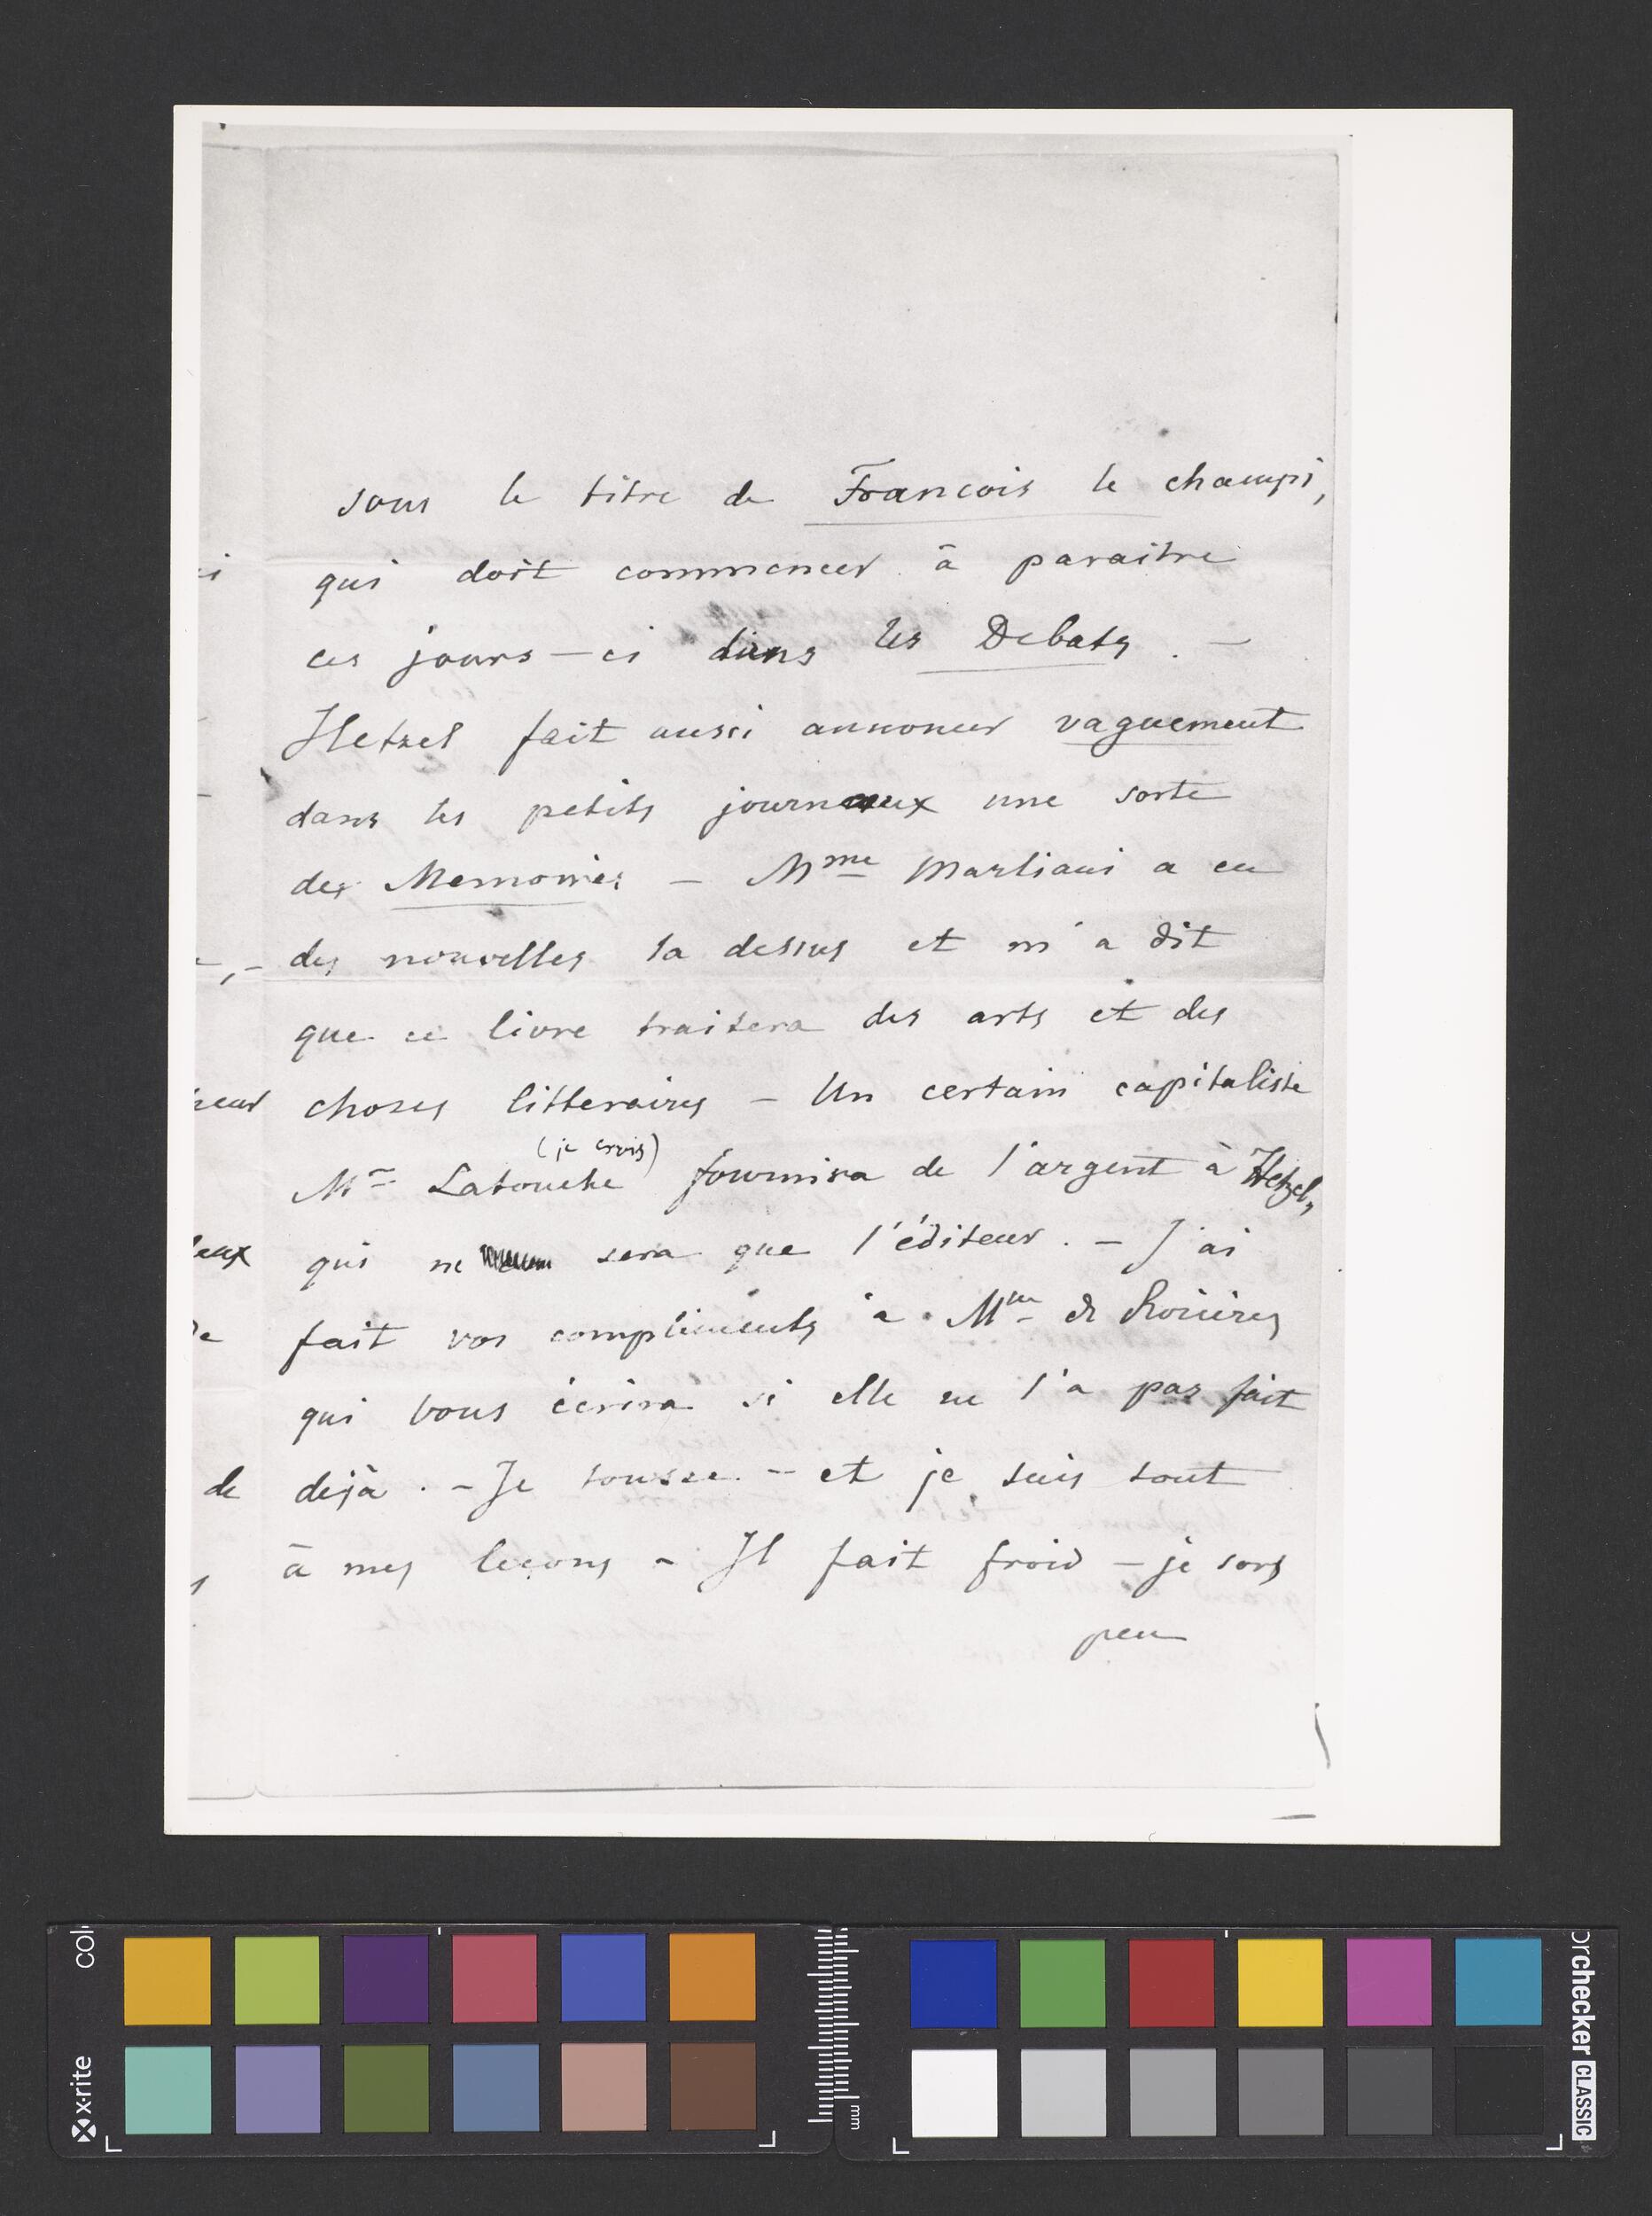 sous le titre de Francois le champi,
qui doit commencer à paraitre
ces jours-ci dans les Debats. -
Hetzel fait aussi annoncer vaguement
dans les petits journaux une sorte
des Memoires - Mme Marliani a eu
des nouvelles la dessus et m'a dit
que ce livre traitera des arts et des
choses litteraires - Un certain capitaliste
(je crois)
Mr Latouche fournira de l'argent à Hetzel,
qui ne sera que l'éditeur. - J'ai
fait vos compliments à Mme de Rozières
qui vous écrira si elle ne l'a pas fait
dejà. - Je tousse. - et je suis tout
à mes leçons - Il fait froid - je sors
peu
de
x-rite
col
mm
orchecker CLASSIC